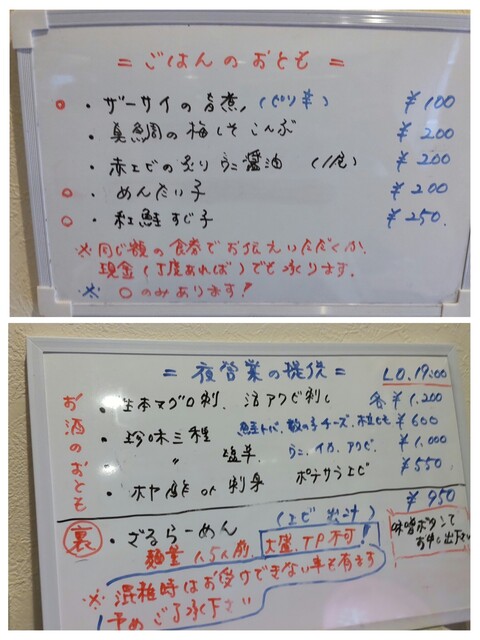 = ごはんのおとも =
○ ・ザーサイの旨煮 (ピリ辛) ¥100
・真鯛の梅しそこんぶ ¥200
・赤エビの炙りうに醤油 (1尾) ¥200
○ ・めんたい子 ¥200
○ ・紅鮭すじ子 ¥250
※同じ額の食券でお伝えいただくか、
現金(丁度あれば)でも承ります。
※ ○のみあります!
= 夜営業の提供 = L.O. 19:00
お酒のおとも
・生本マグロ刺、活アワビ刺し 各¥1,200
・珍味三種 鮭トバ、数の子チーズ、 ¥600
〃 塩辛 うに、イカ、アワビ ¥1,000
・ホヤ酢 or 刺身 ポテサラエビ ¥550
裏 ・ざるらーめん (エビ出汁) ¥950
麺量1.5人前 大盛、TP不可!
味噌ボタンで
お申し出下さい
※混雑時はお受けできない事も有ます
予めご了承下さい